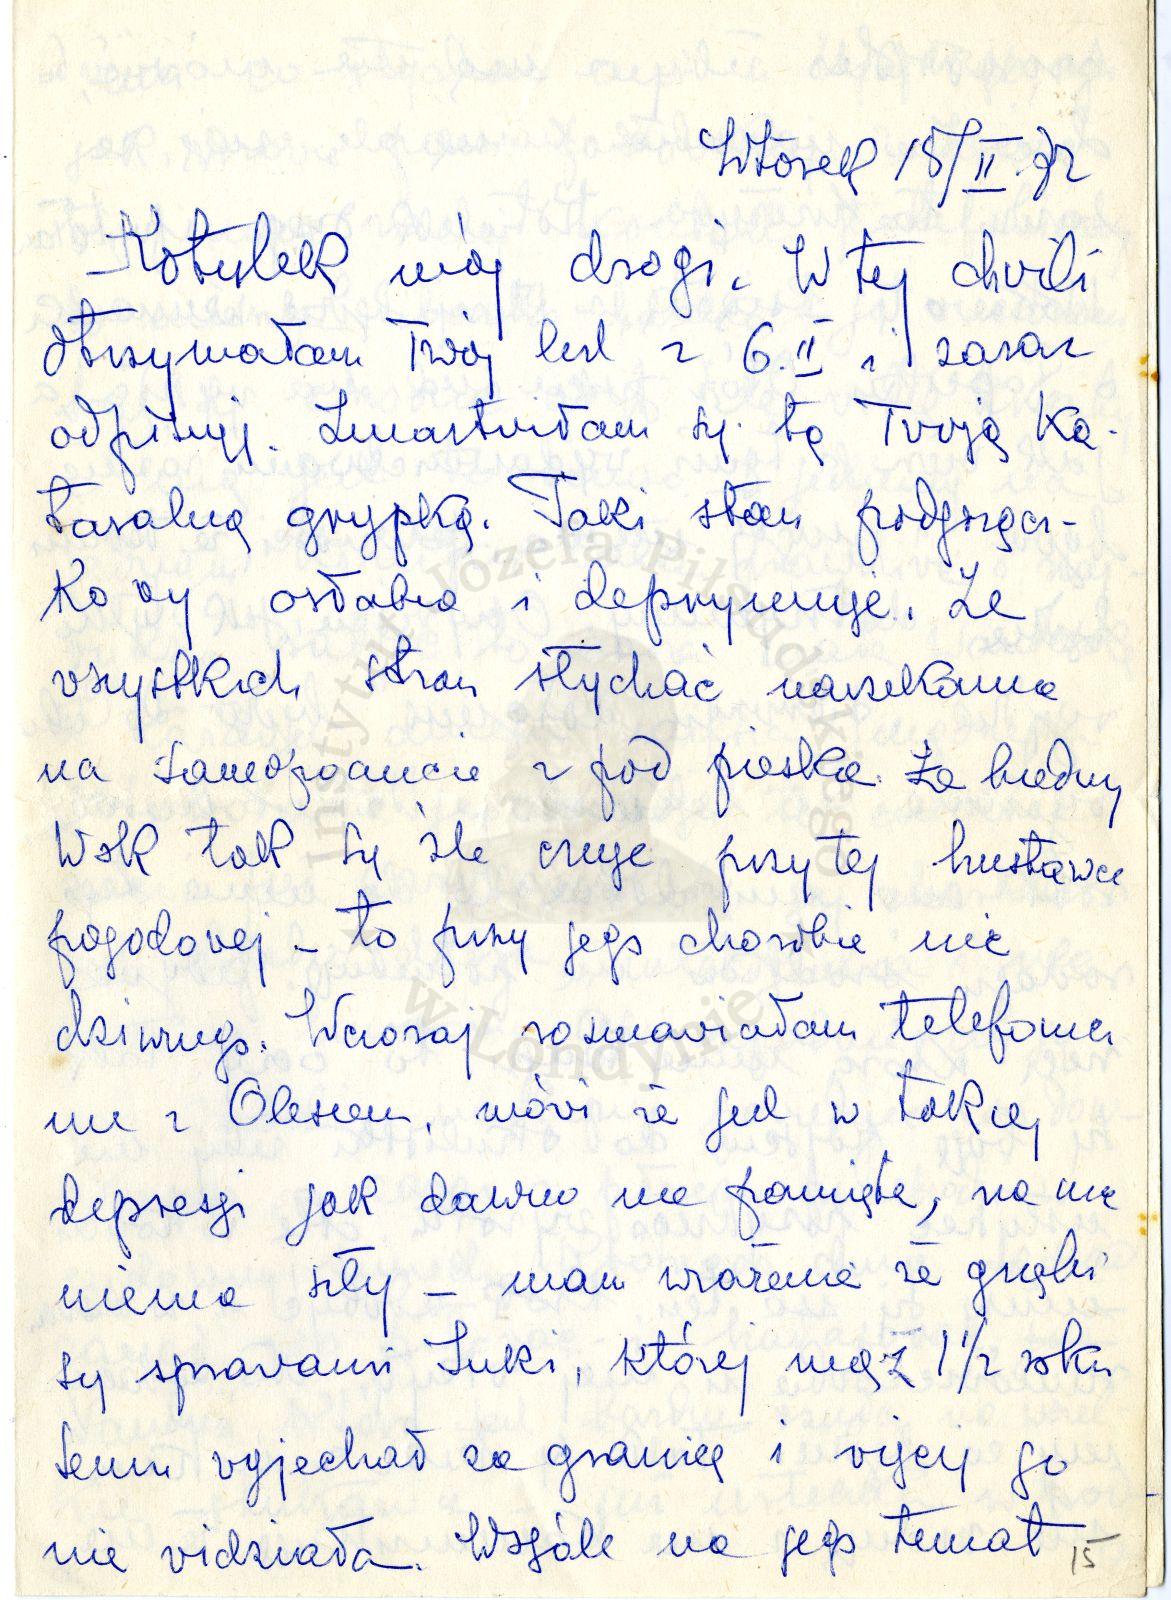 Wtorek 15/II 72
Kotulek mój drogi. W tej chwili
otrzymałam Twój list z 6.II i zaraz
odpisuję. Zmartwiłam się tą Twoją ka-
taralną grypką. Taki stan podgorącz-
kowy osłabia i deprymuje. Ze
wszystkich stron słychać narzekania
na samopoczucie z pod pieska. Że biedny
Wok tak się źle czuje przy tej huśtawce
pogodowej – to przy jego chorobie nic
dziwnego. Wczoraj rozmawiałam telefonicz
nie z Olesiem, mówi że jest w takiej
depresji jak dawno nie pamięta, na nic
niema siły – mam wrażenie że gnębi
się sprawami Inki, której mąż 1 1/2 roku
temu wyjechał za granicę i więcej go
nie widziała. Wogóle na jego temat
15
Instytut Józefa Piłsudskiego
w Londynie